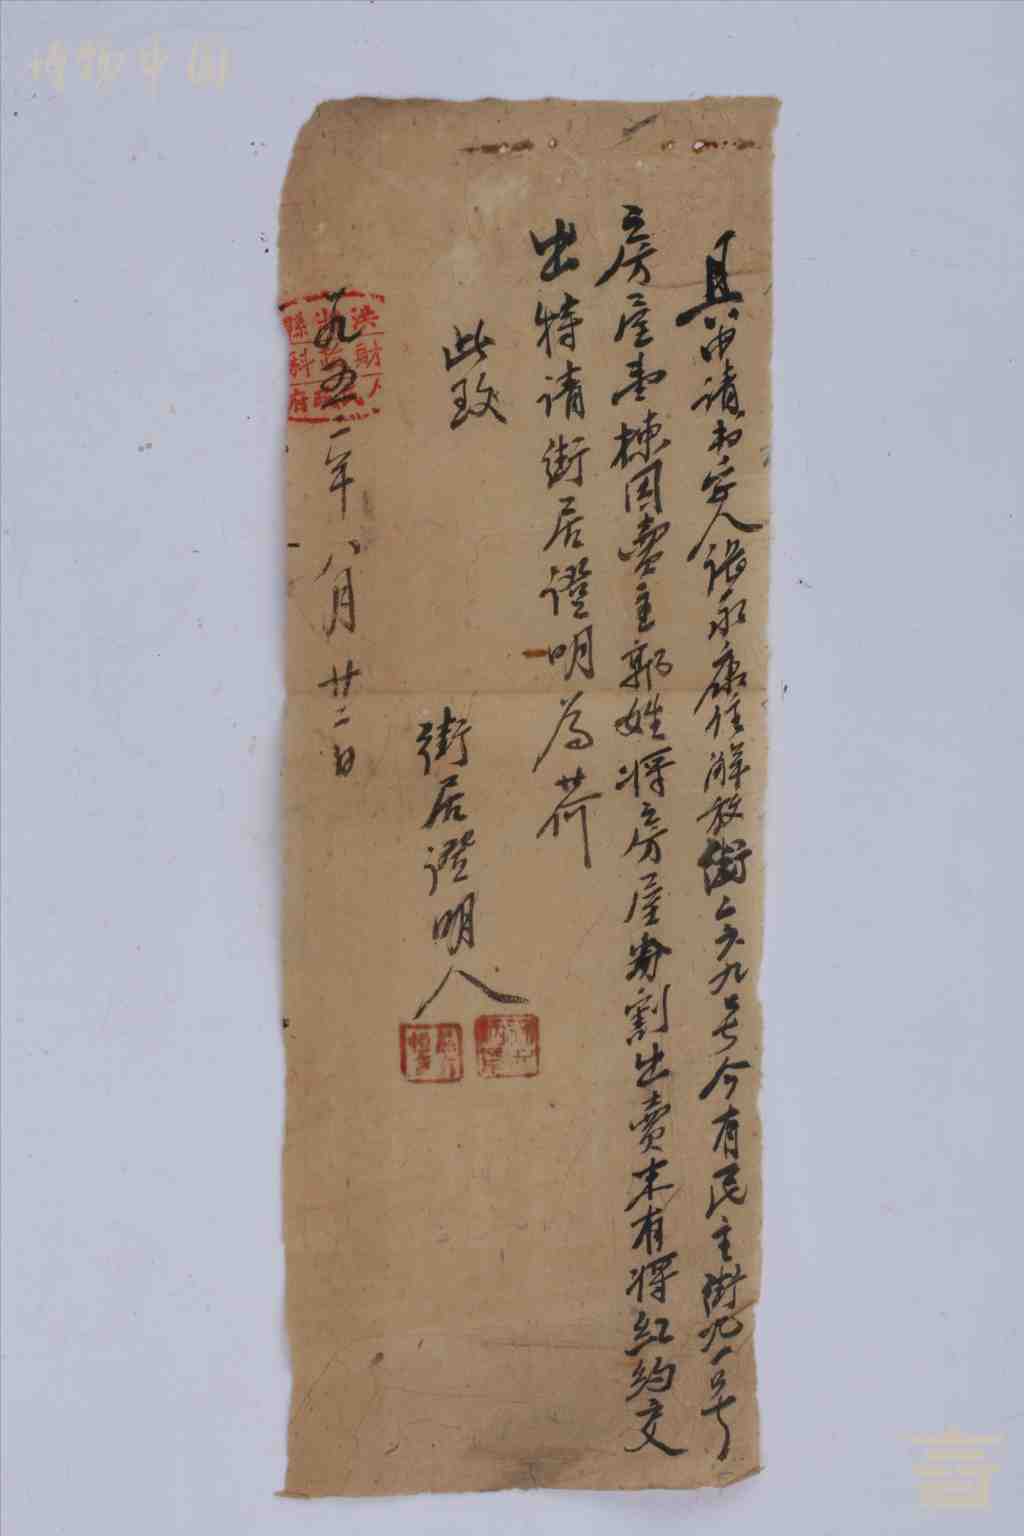 具申请書字人張永康住解放街二六九号今有民主街九一号
房屋壹棟因賣主郭姓将房屋分割出賣未有将紅約交
出特请街居證明為荷
此致
街居證明人
一九五二年八月廿二日
洪
縣
財
科
府
博物中国